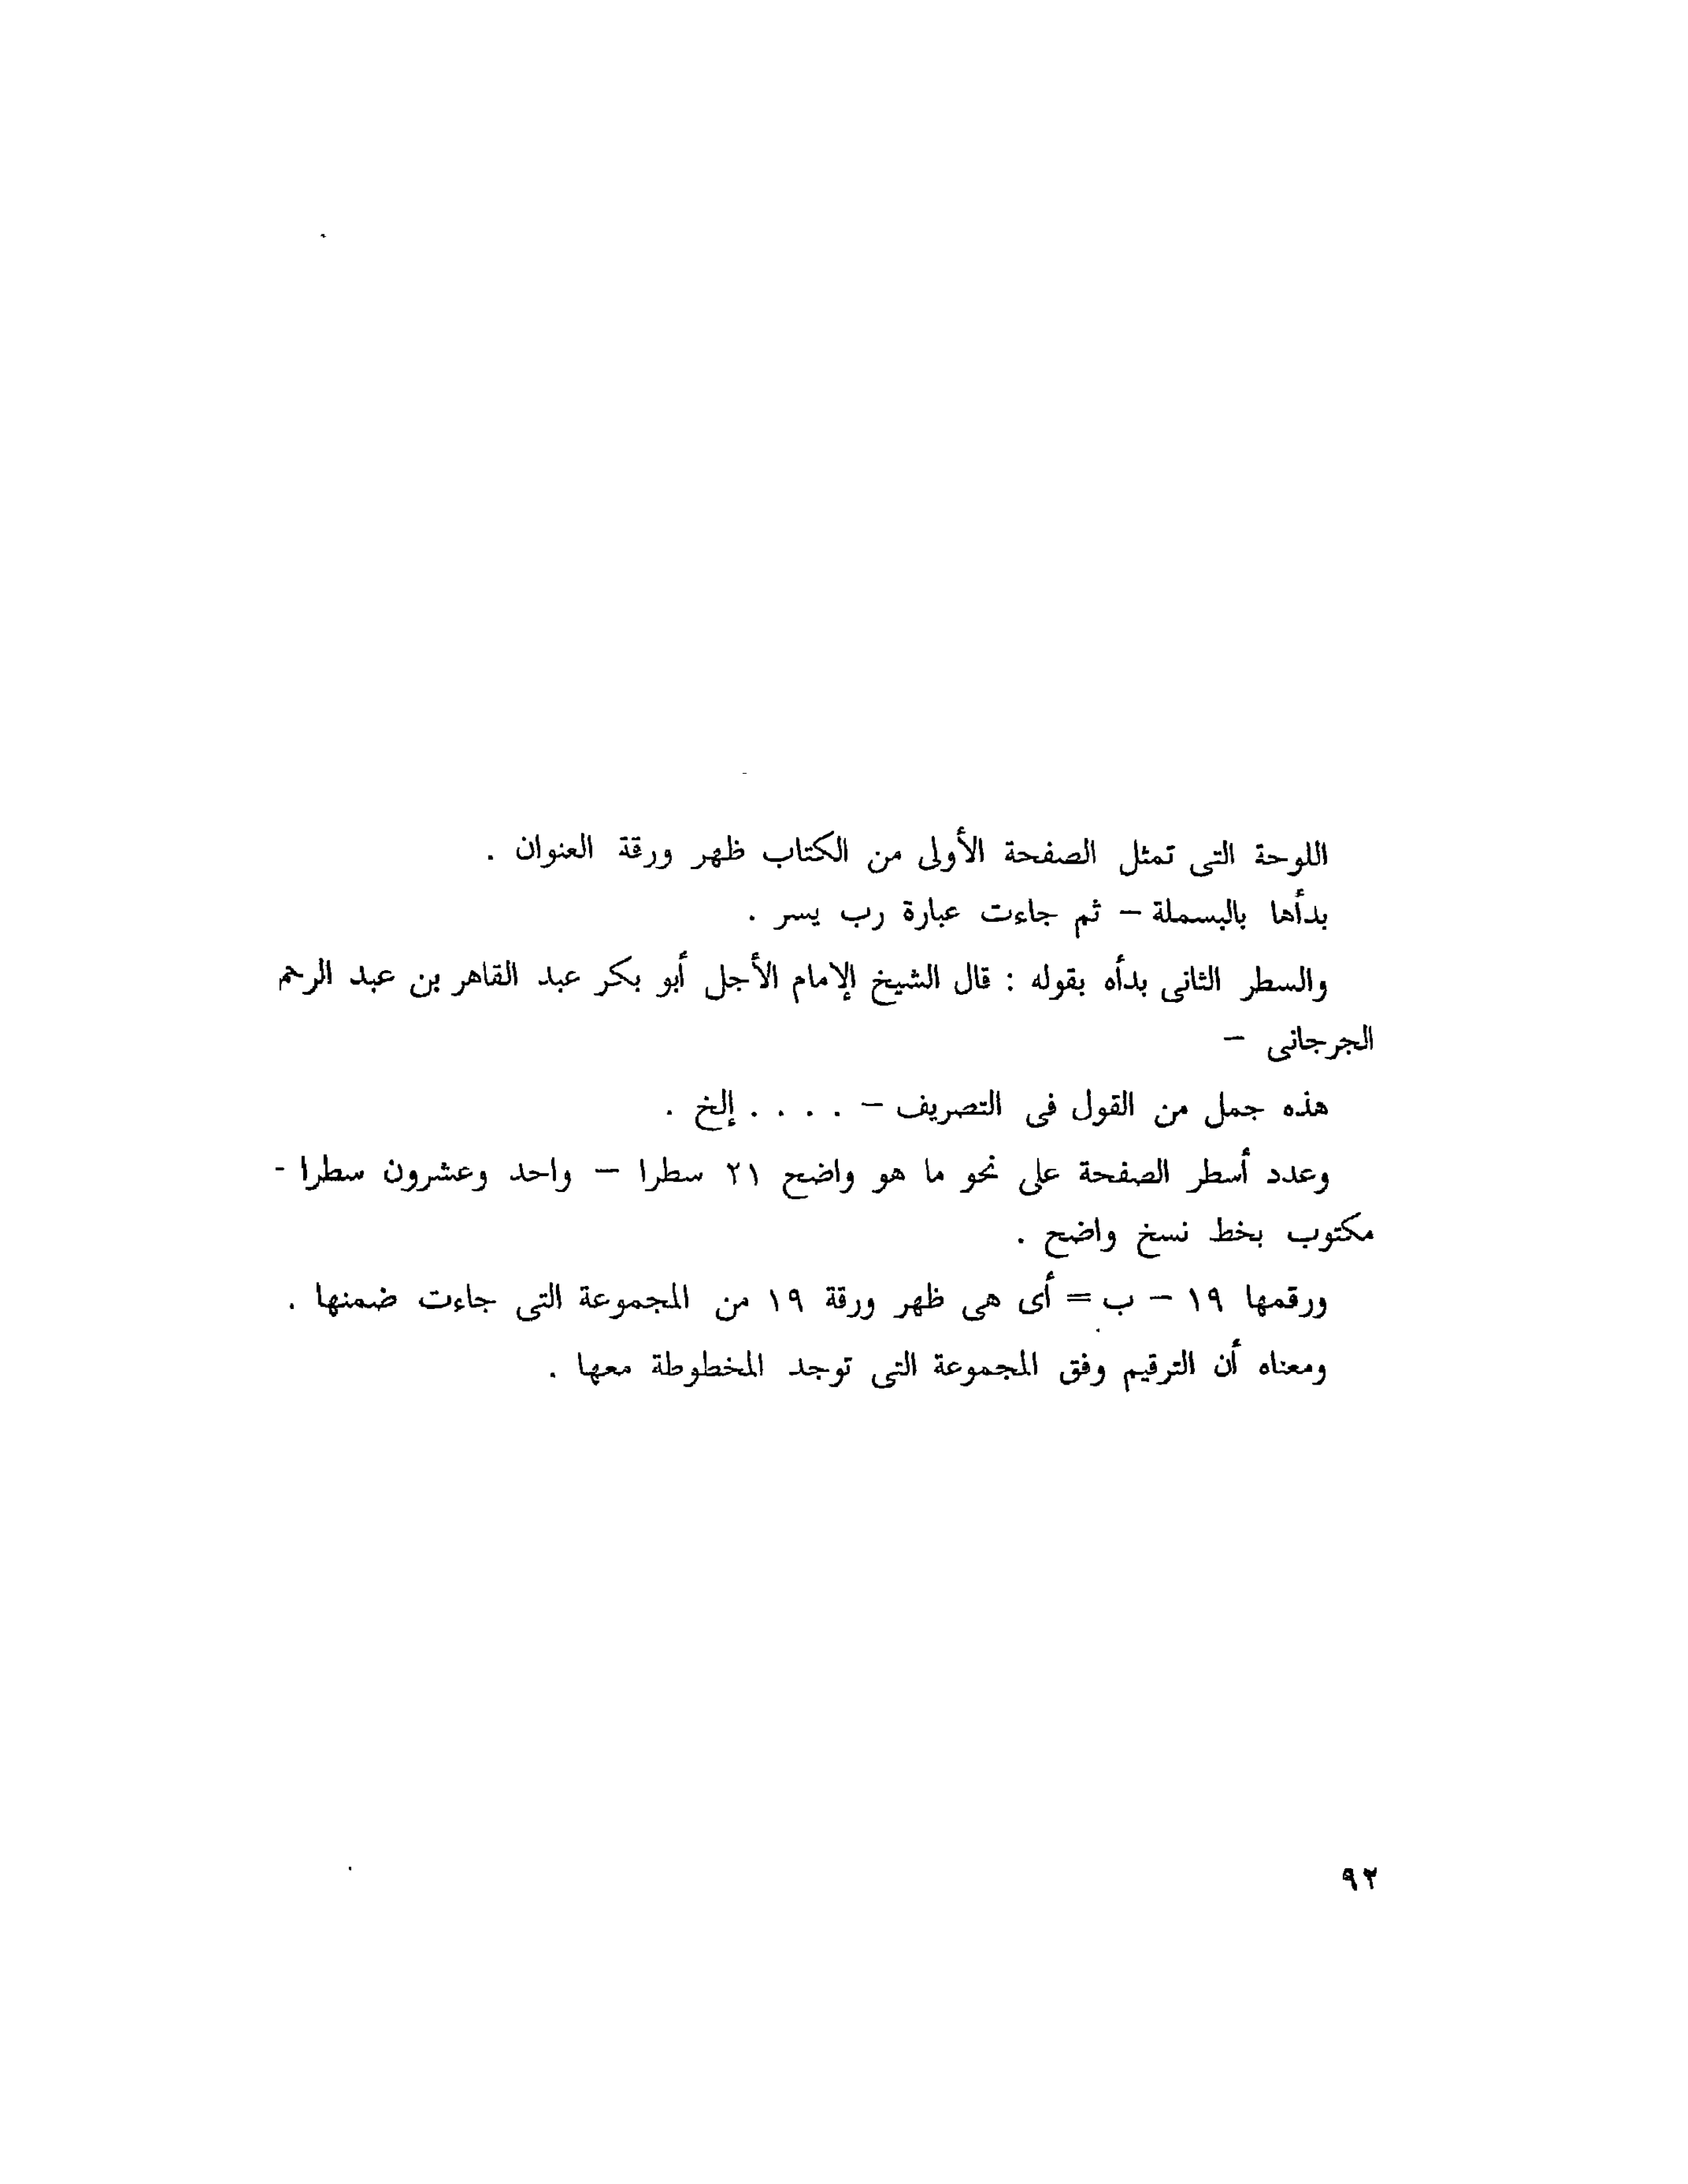 اللوحة التى تمثل الصفحة الأولى من الكتاب ظهر ورقة العنوان .
بدأها بالبسملة – ثم جاءت عبارة رب يسر .
والسطر الثانى بدأه بقوله : قال الشيخ الإمام الأجل أبو بكر عبد القاهر بن عبد الرحم
الجرجانى –
هذه جمل من القول فى التصريف – . . . . إلخ .
وعدد أسطر الصفحة على نحو ما هو واضح ٢١ سطرا – واحد وعشرون سطرا -
مكتوب بخط نسخ واضح .
ورقمها ١٩ – ب = أى هى ظهر ورقة ١٩ من المجموعة التى جاءت ضمنها .
ومعناه أن الترقيم وفق المجموعة التى توجد المخطوطة معها .
٩٢